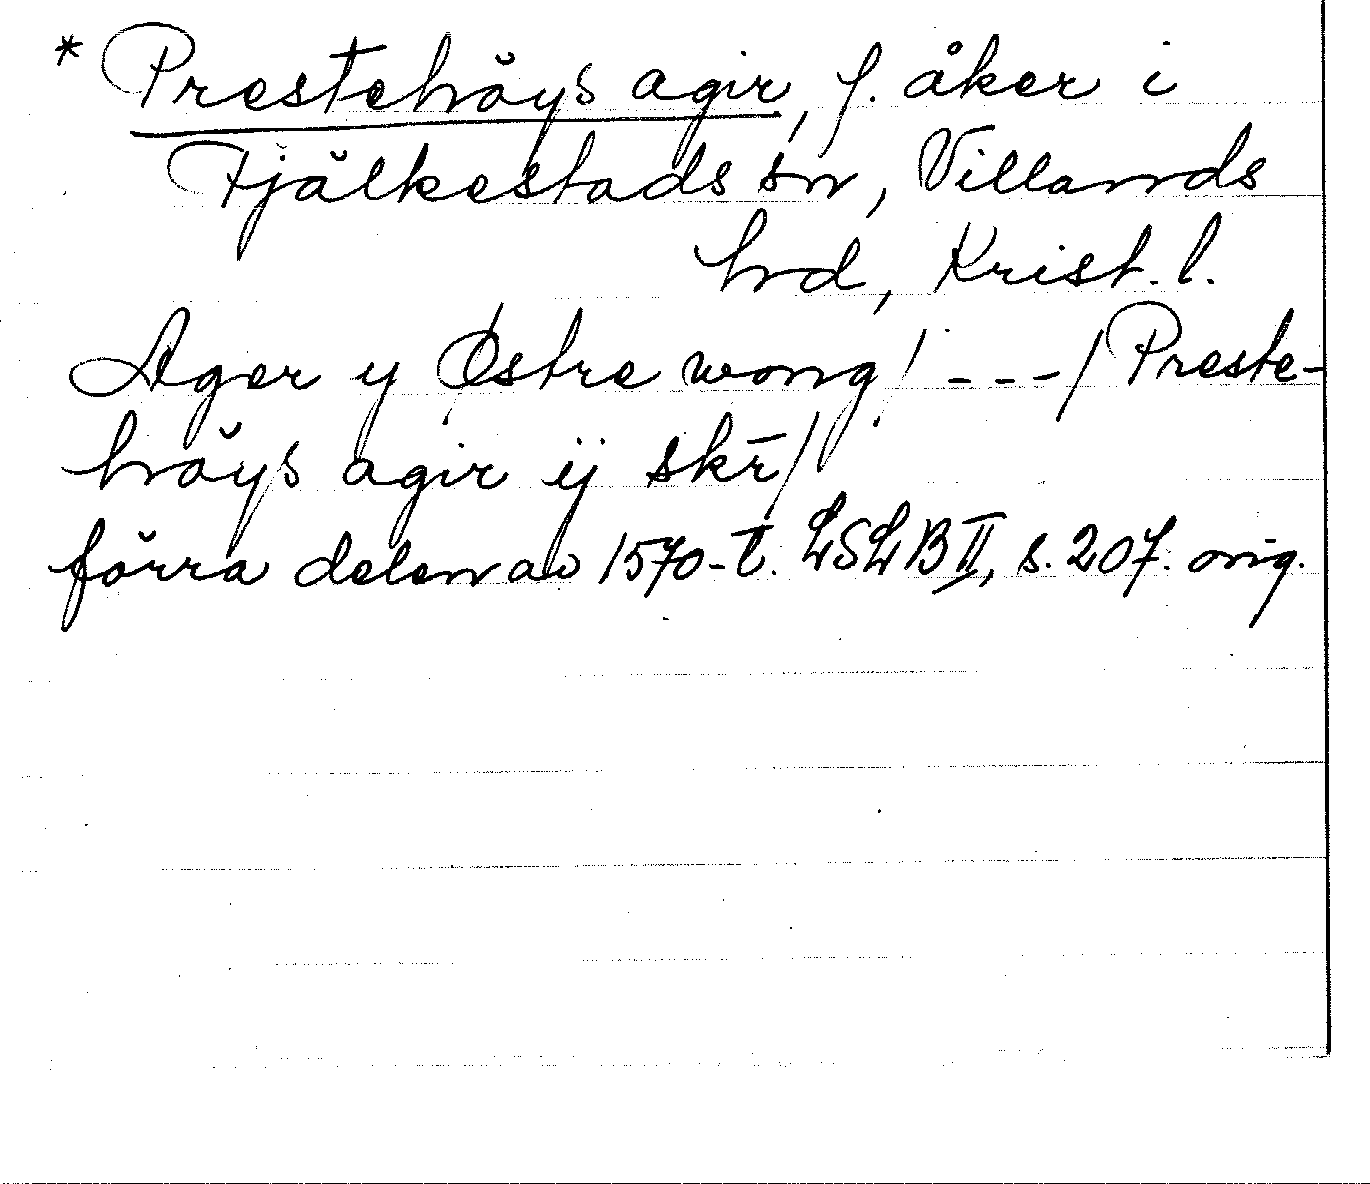 * Prestehöys agir, f. åker i
Fjälkestads sn, Villands
hd, Krist. l.
Ager y Østre wong / - - - / Preste-
höys agir ij skr̄ /
förra delen av 1570-t. LSLB II, s. 207. orig.